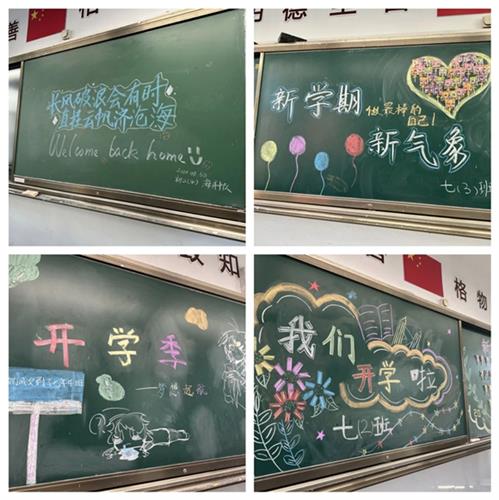 善
长风破浪会有时
直挂云帆济沧海
Welcome back home
新学期
做最棒的
自己!
新气象
七(3)班
致知
开学季
—梦想起航
格物
我们
开学啦
七(2)班